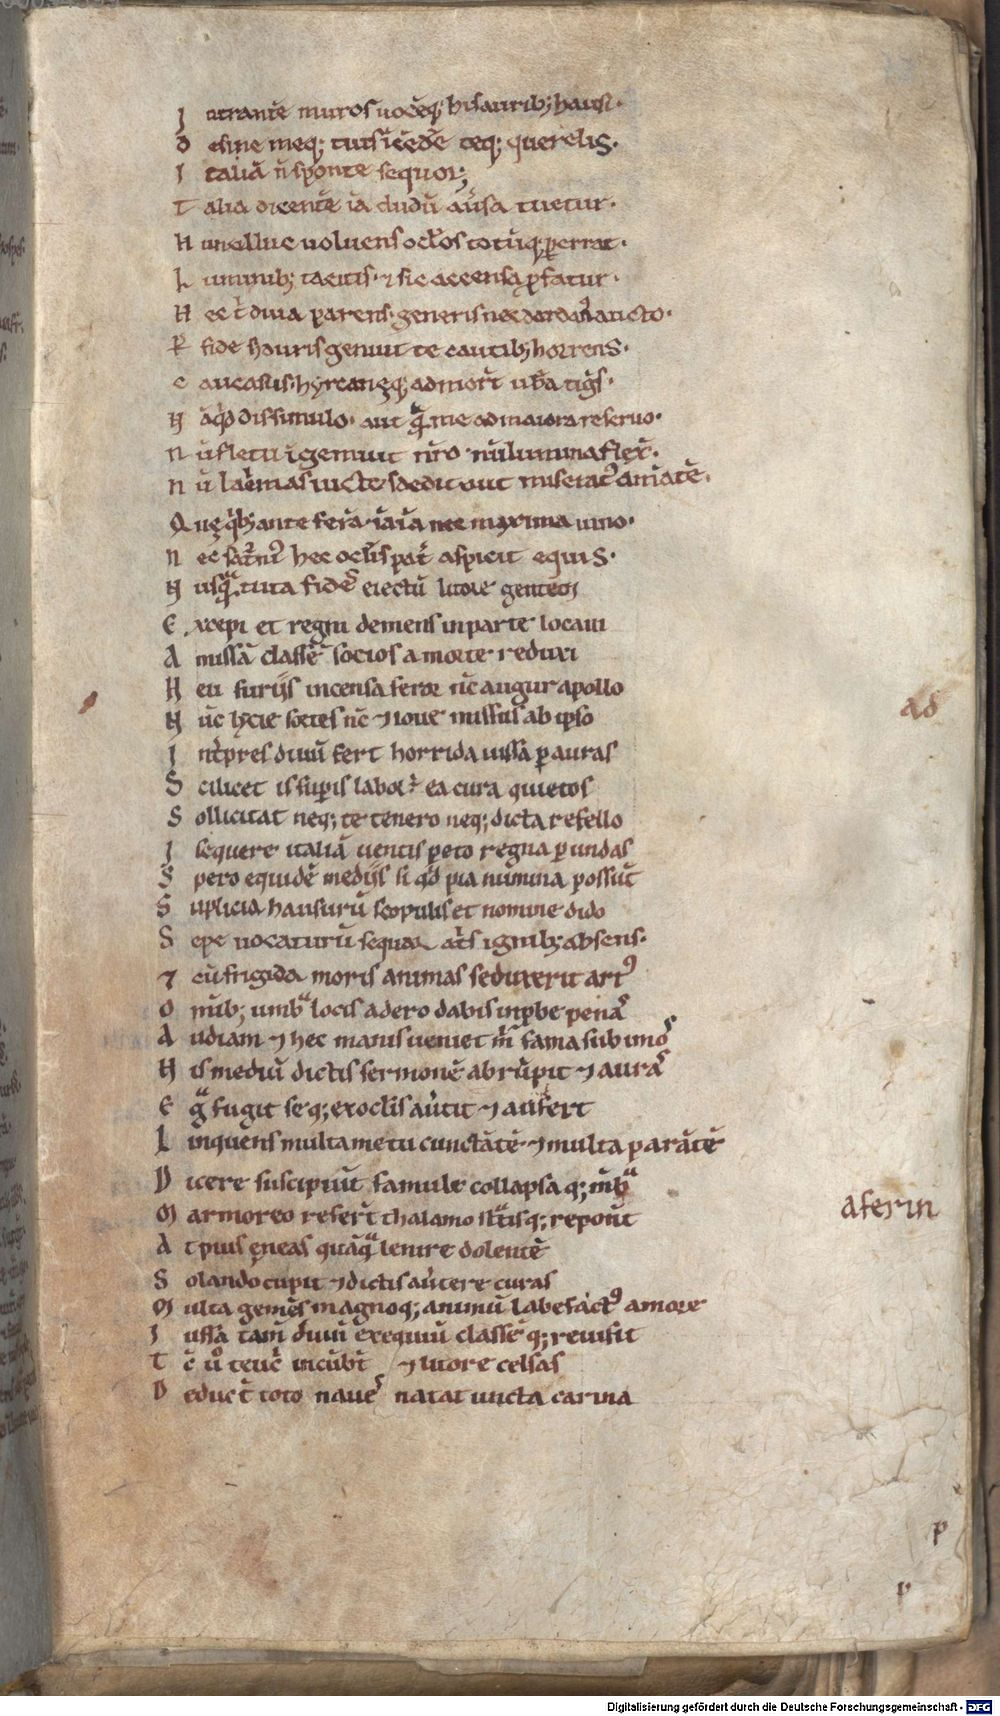 I ntrantē muros uocēq; his aurib; hausi·
D esine meq; tuis īcēdē teq; querelis·
I taliā n̄ sponte sequor;
T alia dicentē iā dudū au̅sa tuetur·
H uncilluc uoluens oc̄l'os totūq; ꝑerrat·
L uminib; tacitis· ⁊ sic accensa ꝓfatur·
N ec t̄ diua parens· generis nec dardan' aucto·
P fide s; duris genuit te cautib; horrens·
C aucasus· hyrcanęq; admor̄t ub̄a tig̊s·
N ā qͥd dissimulo· aut q̄ me ad maiora reseruo·
N ū fletu īgemuit nr̄o nū lumina flex̄·
N ū lac̄mas uict' dedit aut miserat' amātē·
Q uę qͥb; ante ferā· iā iā nec maxima iuno·
N ec sat̄ni' hec oc̄lis pat̄ aspicit equis·
N usqͣ tuta fideˢ eiectū litore gentem
E xcepi et regni demens in parte locaui
A missā classē socios a morte reduxi
H eu furijs incensa feror nc̄ augur apollo
N ūc lycie sortes nc̄ ⁊ ioue missus ab ipso
I nt̄pres diuū fert horrida iussa ꝑ auras
S cilicet is suꝑis labor ÷ ea cura quietos
S ollicitat neq; te teneo neq; dicta refello
I sequere italiā uentis peto regna ꝑ undas
S pero equidē medijs si qͥd pia numina possūt
S uplicia hausurū scopulis et nomine dido
S epe uocaturū sequar at̄s ignib; absens·
⁊ cū frigida moris animas seduxerit art'
O mīb; umbͣ locis adero dabis inꝓbe penaˢ
A udiam ⁊ hec manis ueniet m̄ fama sub imoˢ
H is mediū dictis sermonē abrūpit ⁊ auraˢ
E gͣ fugit seq; ex oc̄lis au̅tit ⁊ aufert
L inquens multa metu cunctātē ⁊ multa parātē
D icere suscipiūt famule collapsa q; mb̄ͣ
M armoreo refer̄t thalamo st̄tisq; reponūt
A t pius ęneas quāqͣ lenire dolentē
S olando cupit ⁊ dictis au̅tere curas
M ulta gemēs magnoq; animū labefact' amore
I ussa tam̄ diuū exequiū classē q; reuisit
T c̄ uͦ teuc̄ incūb̄t ⁊ litore celsas
D educt̄ toto naueˢ natat uncta carina
ad
aferin
p
v
Digitalisierung gefördert durch die Deutsche Forschungsgemeinschaft - DFG